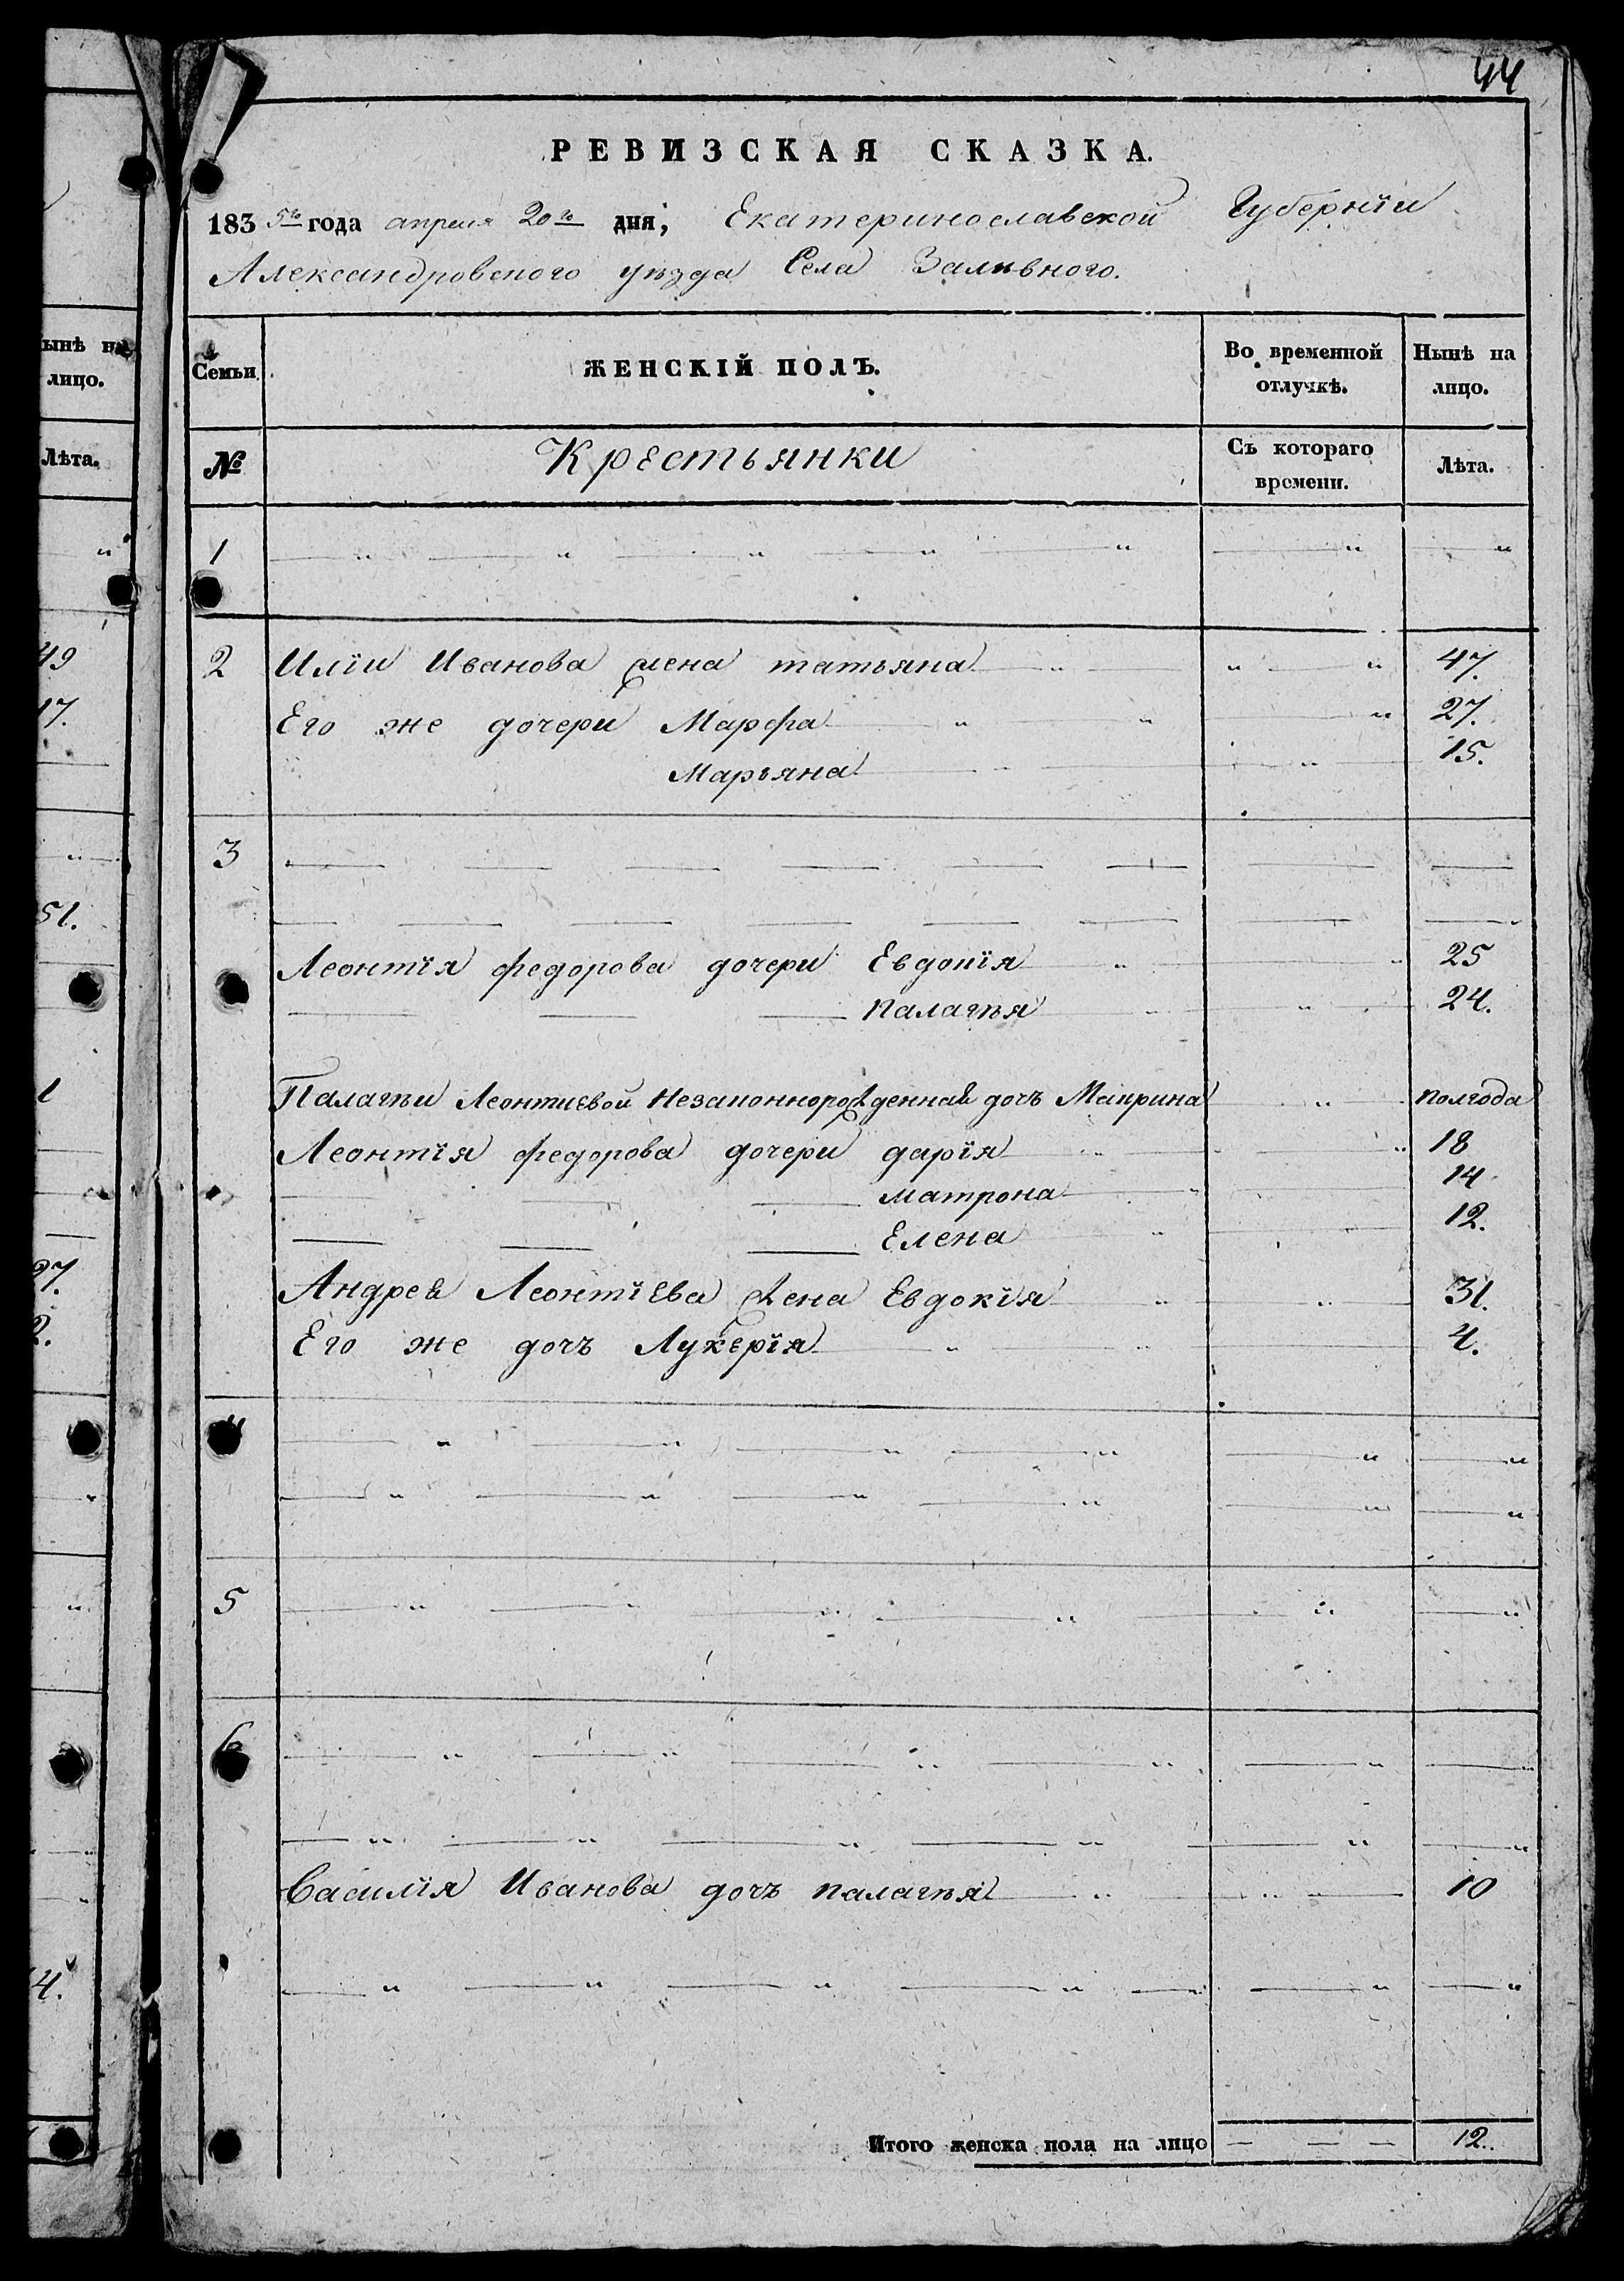 44
РЕВИЗСКАЯ СКАЗКА.
183 5го года апреля 20го дня, Екатеринославской Губернїи
Александровского уѣзда Села Заливного.
ынѣ на лицо.
Лѣта.
Семьи
ЖЕНСКІЙ ПОЛЪ.
Во временной отлучкѣ.
Нынѣ на лицо.
№
Крестьянки
Съ котораго времени.
Лѣта.
1
2 Илїи Иванова жена татьяна 47.
Его же дочери Марфа 27.
Марьяна 15.
3
Леонтїя федорова дочери Евдокїя 25
палагѣя 24.
Палагѣи Леонтиевой Незаконнорожденная дочь Маврина полгода
Леонтїя федорова дочери дарїя 18
матрона 14
Елена 12.
Андрея Леонтїева жена Евдокїя 31.
Его же дочь Лукерїя 4.
4
5
6
Василїя Иванова дочь палагѣя 10
Итого женска пола на лицо 12.
49
17.
51.
1
27.
2.
4.